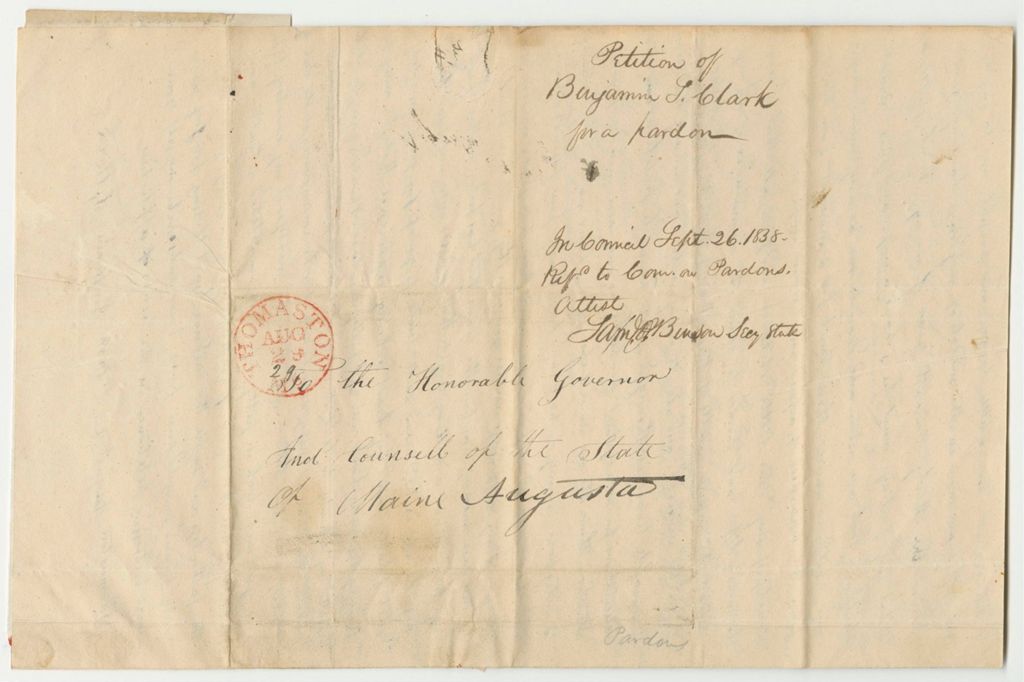 Petition of
Benjamin S. Clark
for a pardon
In Council Sept. 26. 1838.
Refd to Com. on Pardons.
Attest
Saml P Benson Secy State
THOMASTON
AUG
29
To the Honorable Governor
And Counsell of the State
Of Maine Augusta
Pardons